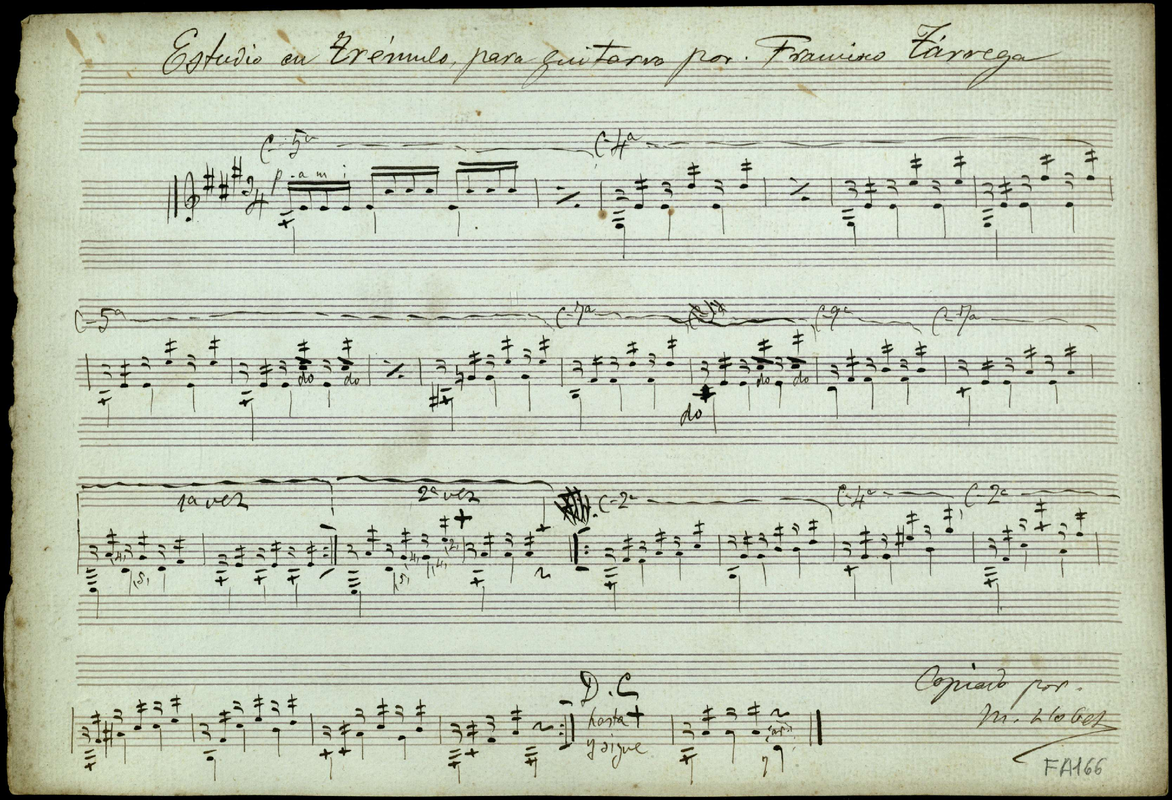 Estudio en Trémulo, para guitarra por. Francisco Tárrega
C-5ª C-4ª
3/4 p a m i
C-5ª C-7ª C-9ª C-7ª
do do do do
do
1ª vez 2ª vez C-2ª C-4ª C-2ª
(4) (4) (2)
(5) (5) (4)
D. C
hasta +
y sigue
Copiado por.
M. Llobet
FA166